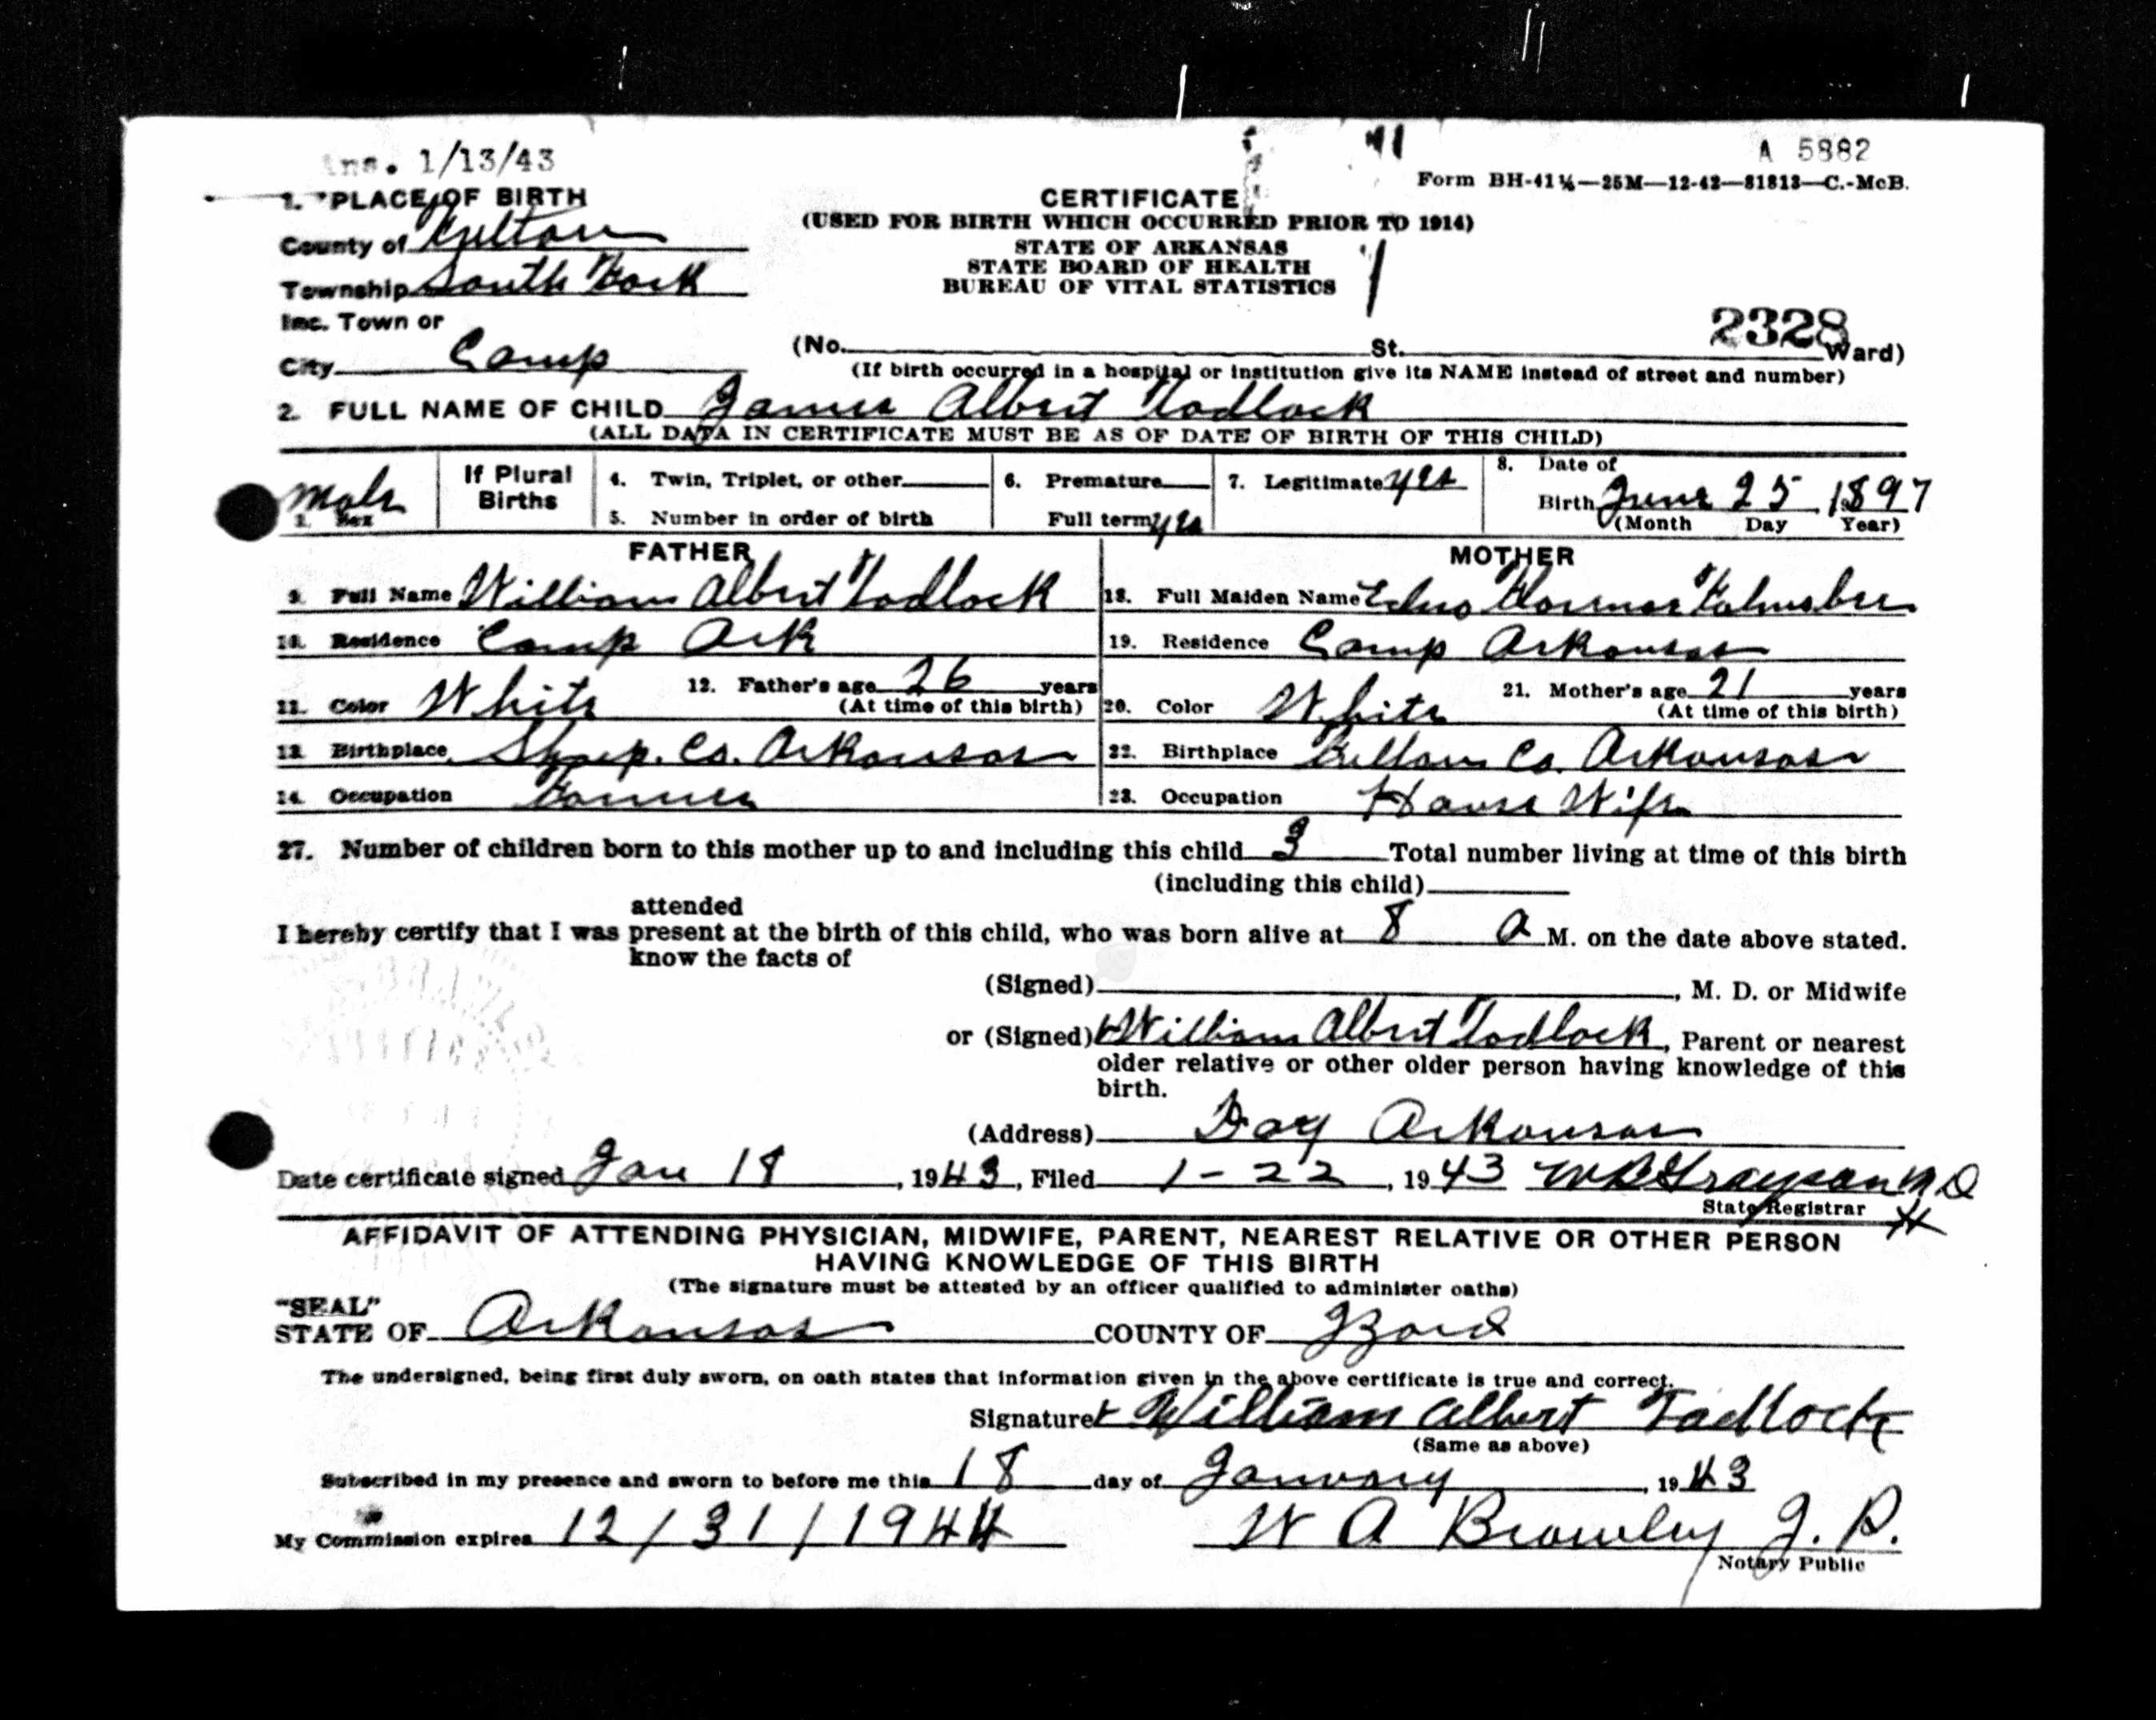 Ans. 1/13/43
A 5882
Form BH-41½—25M—12-42—81813—C.-McB.
1. PLACE OF BIRTH
CERTIFICATE
(USED FOR BIRTH WHICH OCCURRED PRIOR TO 1914)
County of Fulton
STATE OF ARKANSAS
STATE BOARD OF HEALTH
BUREAU OF VITAL STATISTICS
Township South Fork
Inc. Town or
2328
City Camp (No. St. Ward)
(If birth occurred in a hospital or institution give its NAME instead of street and number)
2. FULL NAME OF CHILD James Albert Tadlock
(ALL DATA IN CERTIFICATE MUST BE AS OF DATE OF BIRTH OF THIS CHILD)
Male
3. Sex
If Plural Births
4. Twin, Triplet, or other
5. Number in order of birth
6. Premature
Full term yes
7. Legitimate yes
8. Date of
Birth June 25 1897
(Month Day Year)
FATHER
9. Full Name William Albert Tadlock
10. Residence Camp Ark
11. Color White 12. Father's age 26 years
(At time of this birth)
13. Birthplace Sharp. Co. Arkansas
14. Occupation Farmer
MOTHER
18. Full Maiden Name
19. Residence Camp Arkansas
20. Color White 21. Mother's age 21 years
(At time of this birth)
22. Birthplace Fulton Co. Arkansas
23. Occupation House Wife
27. Number of children born to this mother up to and including this child 3 Total number living at time of this birth
(including this child)
attended
I hereby certify that I was present at the birth of this child, who was born alive at 8 A M. on the date above stated.
know the facts of
(Signed) , M. D. or Midwife
or (Signed) William Albert Tadlock, Parent or nearest
older relative or other older person having knowledge of this
birth.
(Address) Day Arkansas
Date certificate signed Jan 18, 1943, Filed 1-22, 1943 W B Grayson M D
State Registrar
AFFIDAVIT OF ATTENDING PHYSICIAN, MIDWIFE, PARENT, NEAREST RELATIVE OR OTHER PERSON
HAVING KNOWLEDGE OF THIS BIRTH
(The signature must be attested by an officer qualified to administer oaths)
"SEAL"
STATE OF Arkansas COUNTY OF Izard
The undersigned, being first duly sworn, on oath states that information given in the above certificate is true and correct.
Signature William Albert Tadlock
(Same as above)
Subscribed in my presence and sworn to before me this 18 day of January, 1943
My Commission expires 12/31/1944 W A Browley J. P.
Notary Public